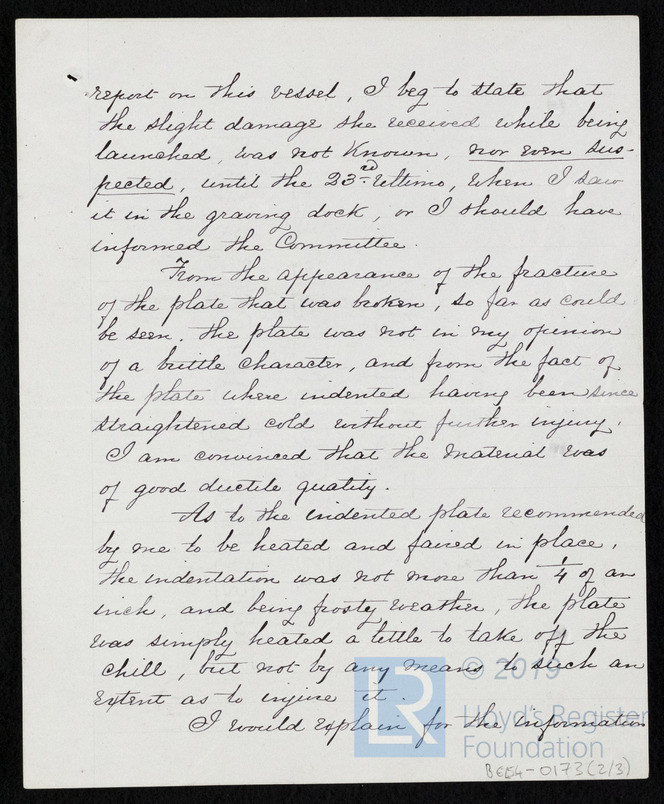 report on this vessel, I beg to state that
the slight damage she received while being
launched, was not known, nor even sus-
pected, until the 23rd Ultimo, when I saw
it in the graving dock, or I should have
informed the Committee.
From the appearance of the fracture
of the plate that was broken, so far as could
be seen, the plate was not in my opinion
of a brittle character, and from the fact of
the plate where indented having been since
straightened cold without further injury,
I am convinced that the material was
of good ductile quality.
As to the indented plate recommended
by me to be heated and faired in place,
the indentation was not more than 1/4 of an
inch, and being frosty weather, the plate
was simply heated a little to take off the
chill, but not by any means to such an
extent as to injure it.
I would explain for the information
© 2019
LR
Lloyd's Register
Foundation
BE64-0173(2/3)